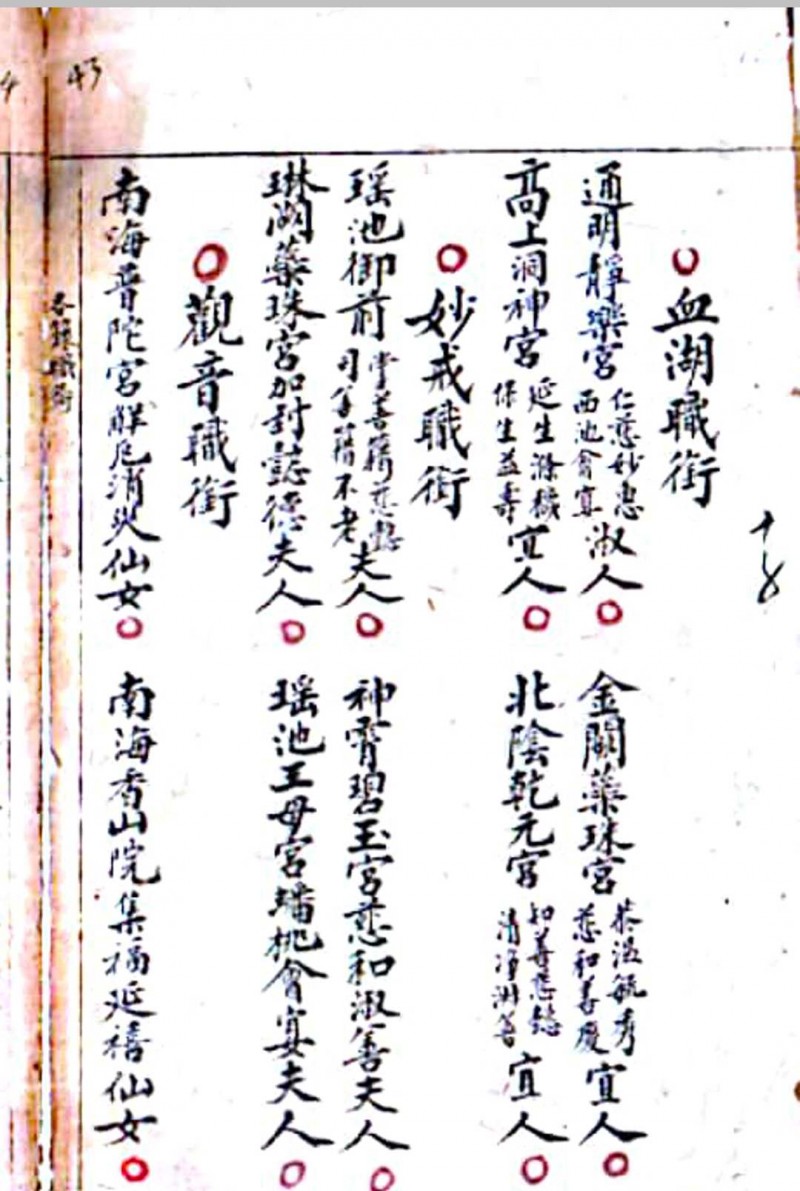 血湖職銜
通明靜樂宮 仁慈妙惠 西池會宴 淑人
金闕蘂珠宮 恭溫毓秀 慈和善慶 宜人
高上洞神宮 延生滌穢 保生益壽 宜人
北陰乾元宮 清淨 宜人
妙戒職銜
瑤池御前 掌善籍慈懿 司笄籍不老 夫人
神霄碧玉宮慈和淑善夫人
琳闕蘂珠宮加封懿德夫人
瑤池王母宮蟠桃會宴夫人
觀音職銜
南海普陀宮解厄消災仙女
南海香山院集福延禧仙女
職銜
43